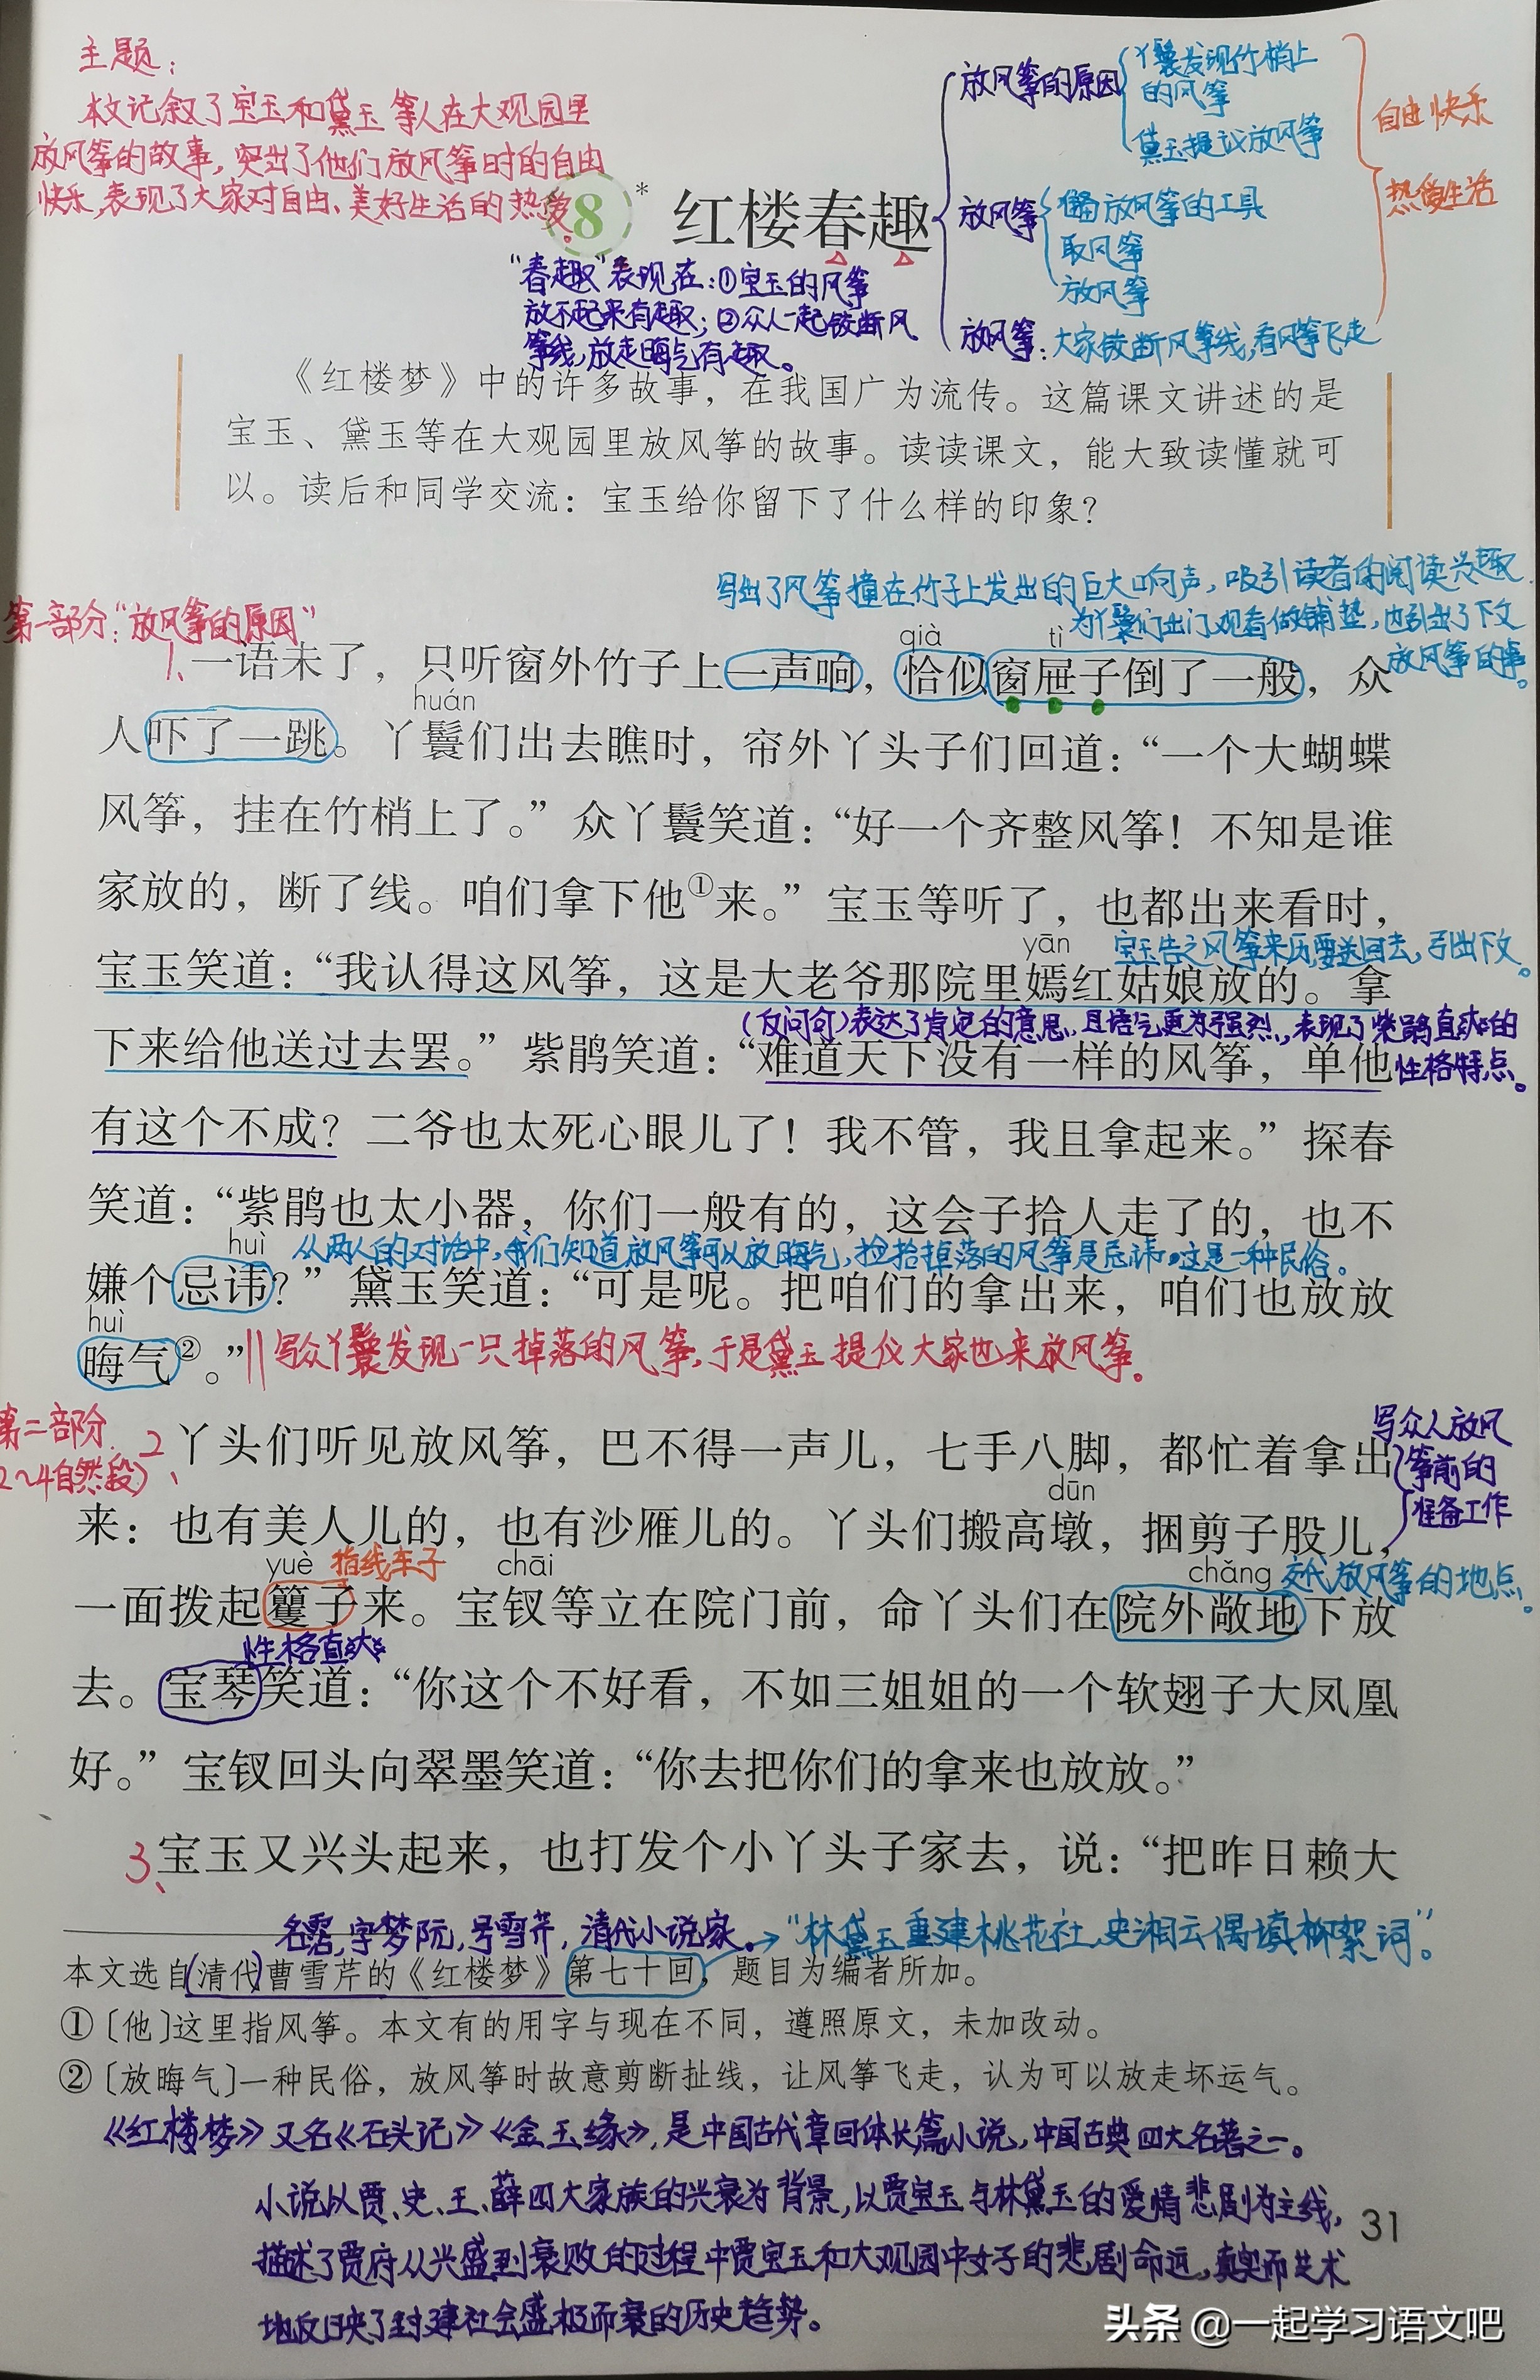 主题：
本文记叙了宝玉和黛玉等人在大观园里
放风筝的故事，突出了他们放风筝时的自由
快乐，表现了大家对自由、美好生活的热爱。
8 * 红楼春趣
放风筝的原因
丫鬟发现竹梢上
的风筝
黛玉提议放风筝
放风筝
准备放风筝的工具
取风筝
放风筝
放风筝：大家铰断风筝线，看风筝飞走
自由快乐
热爱生活
“春趣”表现在：①宝玉的风筝
放不起来有趣；②众人一起铰断风
筝线，放走晦气有趣。
《红楼梦》中的许多故事，在我国广为流传。这篇课文讲述的是
宝玉、黛玉等在大观园里放风筝的故事。读读课文，能大致读懂就可
以。读后和同学交流：宝玉给你留下了什么样的印象？
写出了风筝撞在竹子上发出的巨大响声，吸引读者的阅读兴趣
为丫鬟们出门观看做铺垫，也引出了下文
放风筝的事。
第一部分：“放风筝的原因”
qià tì
1、一语未了，只听窗外竹子上一声响，恰似窗屉子倒了一般，众
huán
人吓了一跳。丫鬟们出去瞧时，帘外丫头子们回道：“一个大蝴蝶
风筝，挂在竹梢上了。”众丫鬟笑道：“好一个齐整风筝！不知是谁
家放的，断了线。咱们拿下他①来。”宝玉等听了，也都出来看时，
yān 宝玉告之风筝来历要送回去，引出下文。
宝玉笑道：“我认得这风筝，这是大老爷那院里嫣红姑娘放的。拿
（反问句）表达了肯定的意思，且语气更为强烈，表现了紫鹃直爽的
性格特点。
下来给他送过去罢。”紫鹃笑道：“难道天下没有一样的风筝，单他
有这个不成？二爷也太死心眼儿了！我不管，我且拿起来。”探春
笑道：“紫鹃也太小器，你们一般有的，这会子拾人走了的，也不
huì 从两人的对话中，我们知道放风筝可以放晦气，捡拾掉落的风筝是忌讳，这是一种民俗。
嫌个忌讳？”黛玉笑道：“可是呢。把咱们的拿出来，咱们也放放
huì
晦气②。”‖写众丫鬟发现一只掉落的风筝，于是黛玉提仪大家也来放风筝。
第二部分
2~4自然段）
写众人放风
筝前的
准备工作
2、丫头们听见放风筝，巴不得一声儿，七手八脚，都忙着拿出
dūn
来：也有美人儿的，也有沙雁儿的。丫头们搬高墩，捆剪子股儿，
yuè 指线车子 chāi chǎng 交代放风筝的地点。
一面拨起籰子来。宝钗等立在院门前，命丫头们在院外敞地下放
性格直爽
去。宝琴笑道：“你这个不好看，不如三姐姐的一个软翅子大凤凰
好。”宝钗回头向翠墨笑道：“你去把你们的拿来也放放。”
3、宝玉又兴头起来，也打发个小丫头子家去，说：“把昨日赖大
名霑，字梦阮，号雪芹，清代小说家。 “林黛玉重建桃花社，史湘云偶填柳絮词”。
本文选自（清代）曹雪芹的《红楼梦》第七十回，题目为编者所加。
①〔他〕这里指风筝。本文有的用字与现在不同，遵照原文，未加改动。
②〔放晦气〕一种民俗，放风筝时故意剪断扯线，让风筝飞走，认为可以放走坏运气。
《红楼梦》又名《石头记》《金玉缘》，是中国古代章回体长篇小说，中国古典四大名著之一。
小说以贾、史、王、薛四大家族的兴衰为背景，以贾宝玉与林黛玉的爱情悲剧为主线，
描述了贾府从兴盛到衰败的过程中贾宝玉和大观园中女子的悲剧命运，真实而艺术
地反映了封建社会盛极而衰的历史趋势。
31
头条 @一起学习语文吧